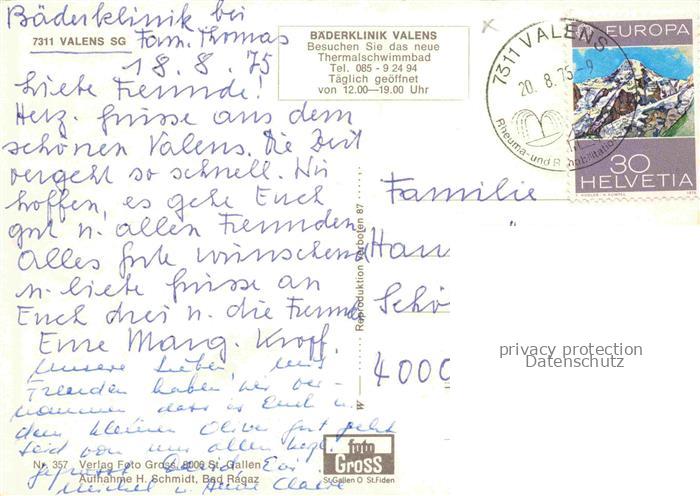 Bäderklinik bei
7311 VALENS SG
Fam. Thomas
18.8.75
BÄDERKLINIK VALENS
Besuchen Sie das neue
Thermalschwimmbad
Tel. 085 - 9 24 94
Täglich geöffnet
von 12.00—19.00 Uhr
7311 VALENS
20.8.75-9
Rheuma- und Rehabilitations
EUROPA
30
HELVETIA
Liebe Freunde!
Herz. grüsse aus dem
schönen Valens. Die Zeit
vergeht so schnell. Wir
hoffen, es gehe Euch
gut u. allen Freunden
Alles gute wünschend
u. liebe grüsse an
Euch drei u. die Freunde
Eure Marg. Kropf.
Unsere Lieben, mit
Freuden haben wir ver-
nommen dass es Euch u.
dem kleinen Oliver gut geht
Seid von uns allen herzl.
gegrüsst
Michel u. Anne Claire
Familie
Han
Schö
4000
privacy protection
Datenschutz
Reproduktion verboten 87
W
Nr. 357 Verlag Foto Gross, 9006 St. Gallen
Aufnahme H. Schmidt, Bad Ragaz
foto
GROSS
St. Gallen O St. Fiden